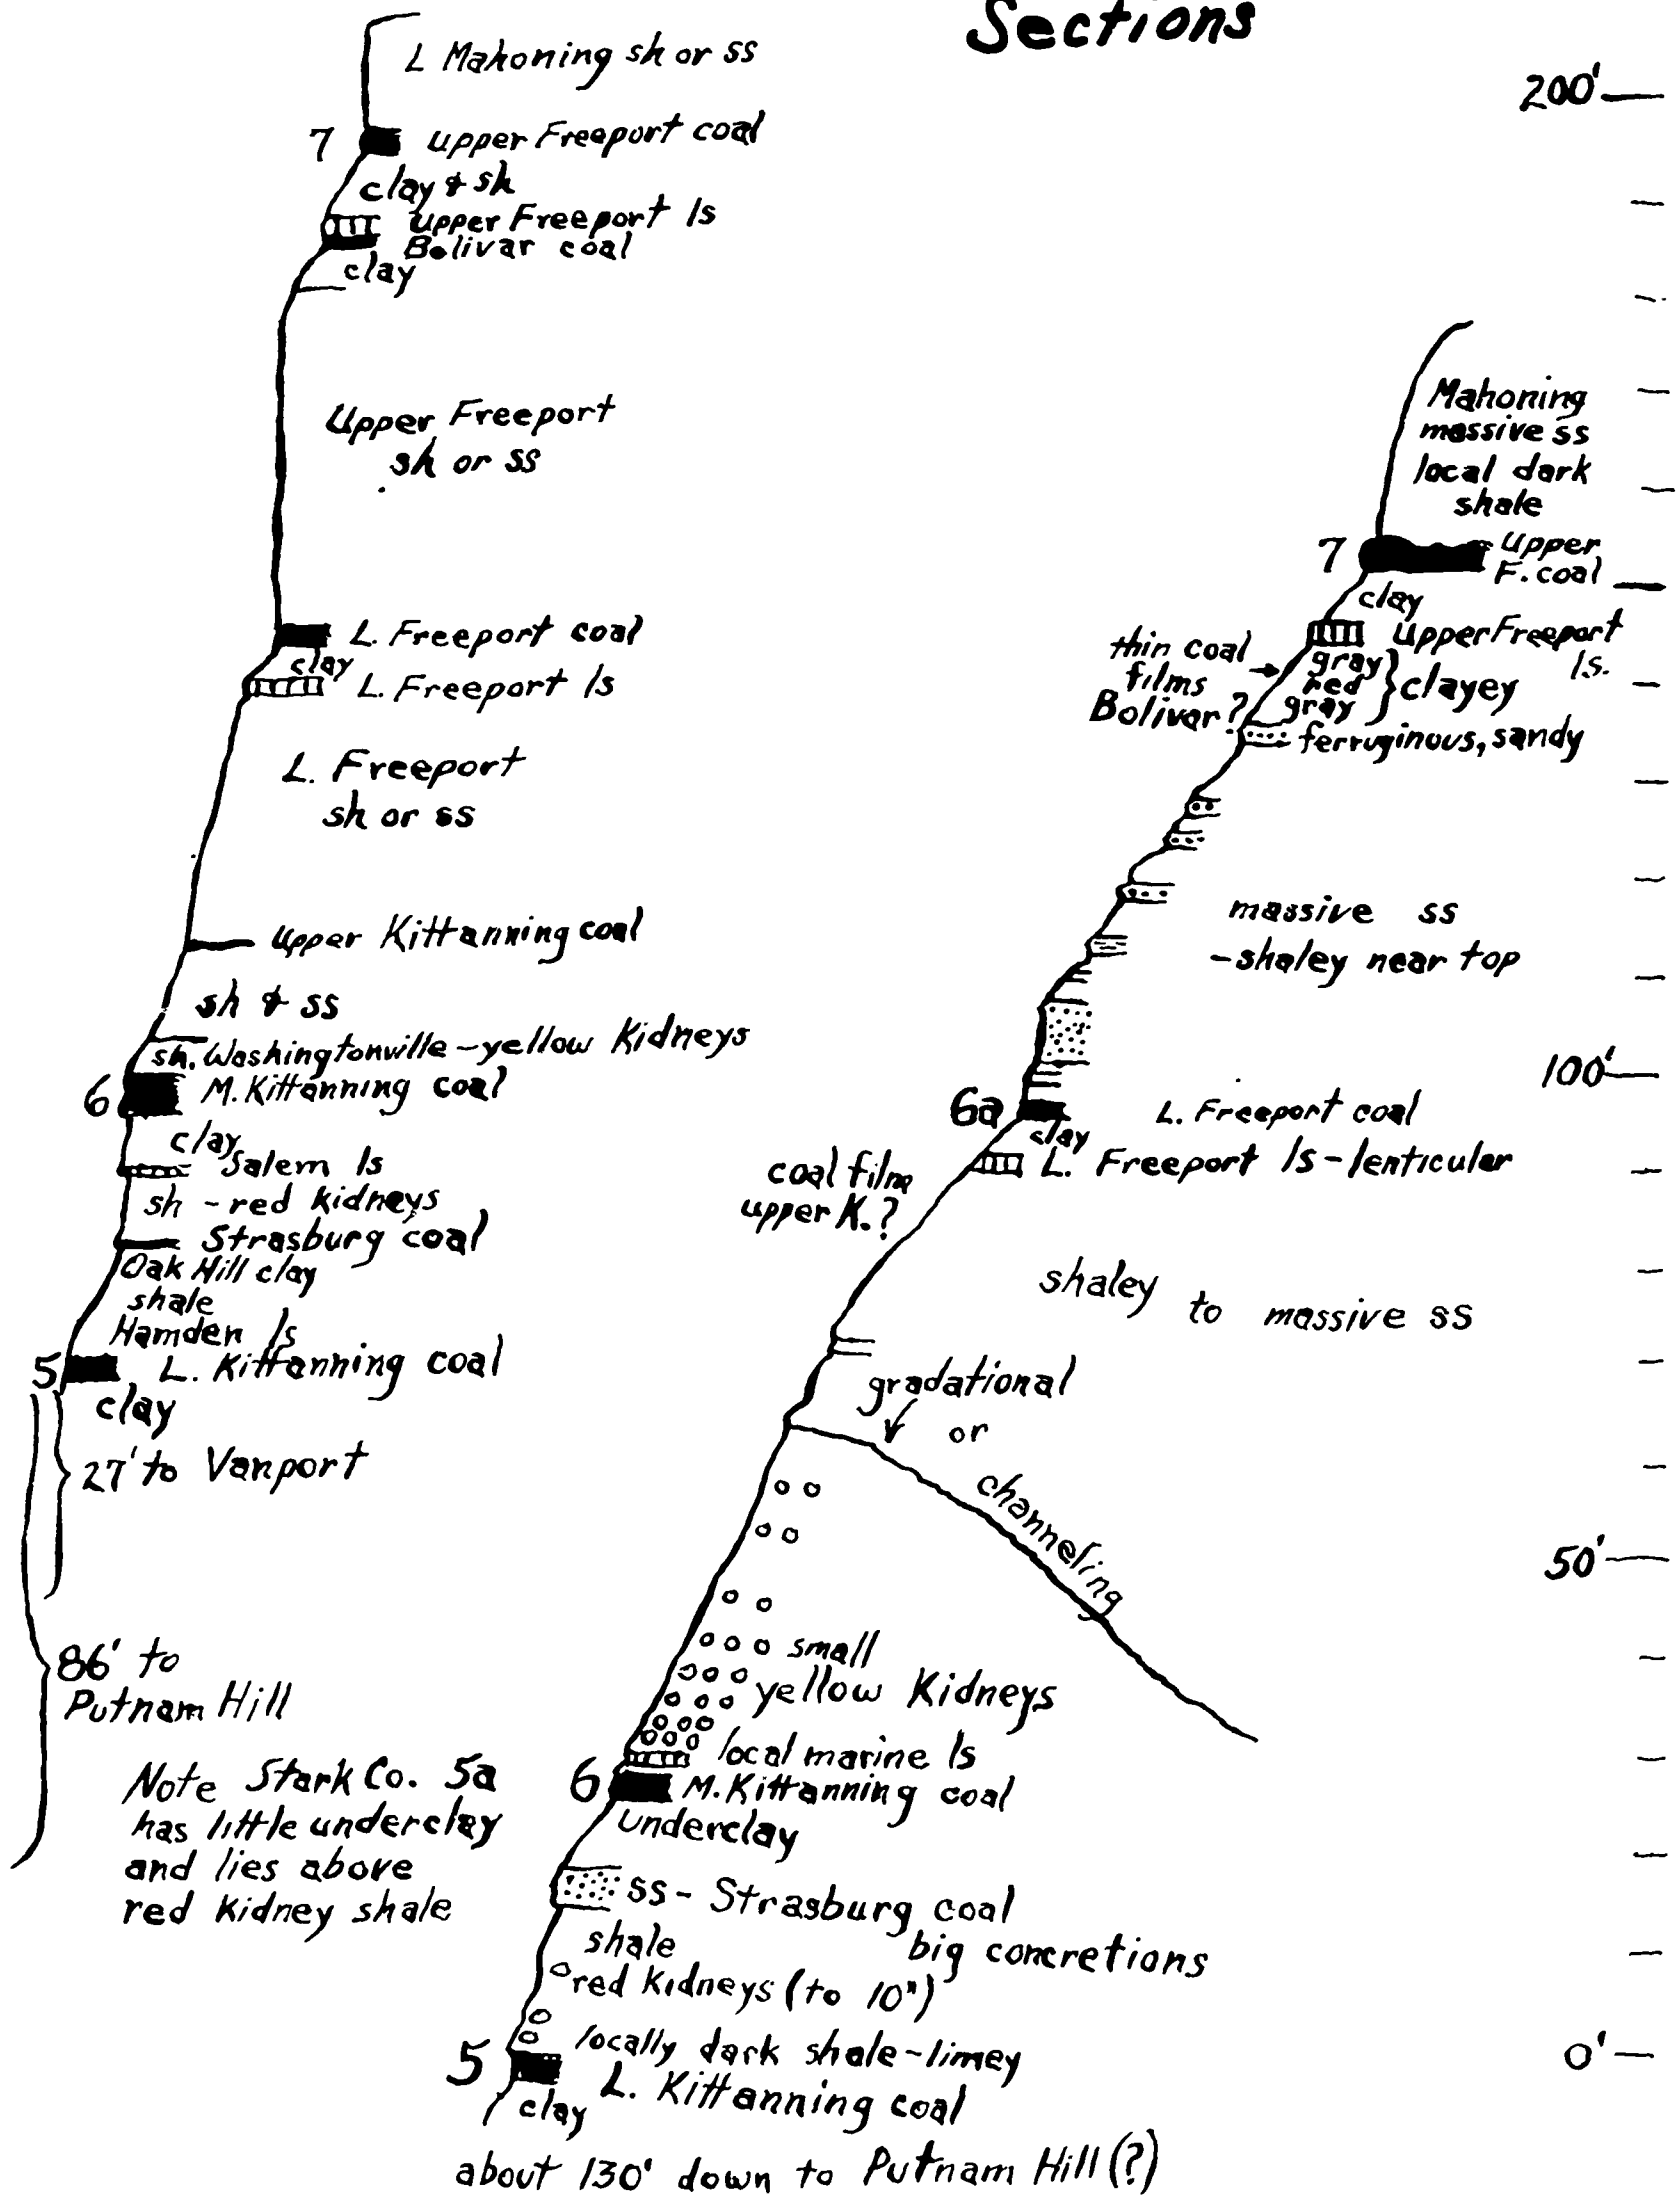 Sections
L Mahoning sh or ss
7 upper Freeport coal
clay & sh
upper Freeport ls
Bolivar coal
clay
Upper Freeport
sh or ss
L. Freeport coal
clay
L. Freeport ls
L. Freeport
sh or ss
upper Kittanning coal
sh & ss
sh. Washingtonville - yellow Kidneys
6 M. Kittanning coal
clay
Salem ls
sh - red kidneys
Strasburg coal
Oak Hill clay
shale
Hamden ls
5 L. Kittanning coal
clay
27' to Vanport
86' to
Putnam Hill
Note Stark Co. 5a
has little underclay
and lies above
red Kidney shale
Mahoning
massive ss
local dark
shale
7 upper
F. coal
clay
upper Freeport
ls.
thin coal
films
Bolivar?
gray
red
gray
clayey
ferruginous, sandy
massive ss
-shaley near top
6a L. Freeport coal
clay
L. Freeport ls - lenticular
coal film
upper K.?
shaley to massive ss
gradational
or
channeling
small
yellow Kidneys
local marine ls
6 M. Kittanning coal
underclay
ss - Strasburg coal
shale big concretions
red Kidneys (to 10")
locally dark shale - limey
5 L. Kittanning coal
clay
about 130' down to Putnam Hill (?)
200'
100'
50'
0'